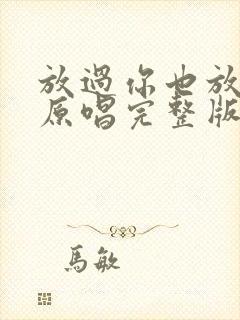 放過你也放
原唱完整版
馬敏